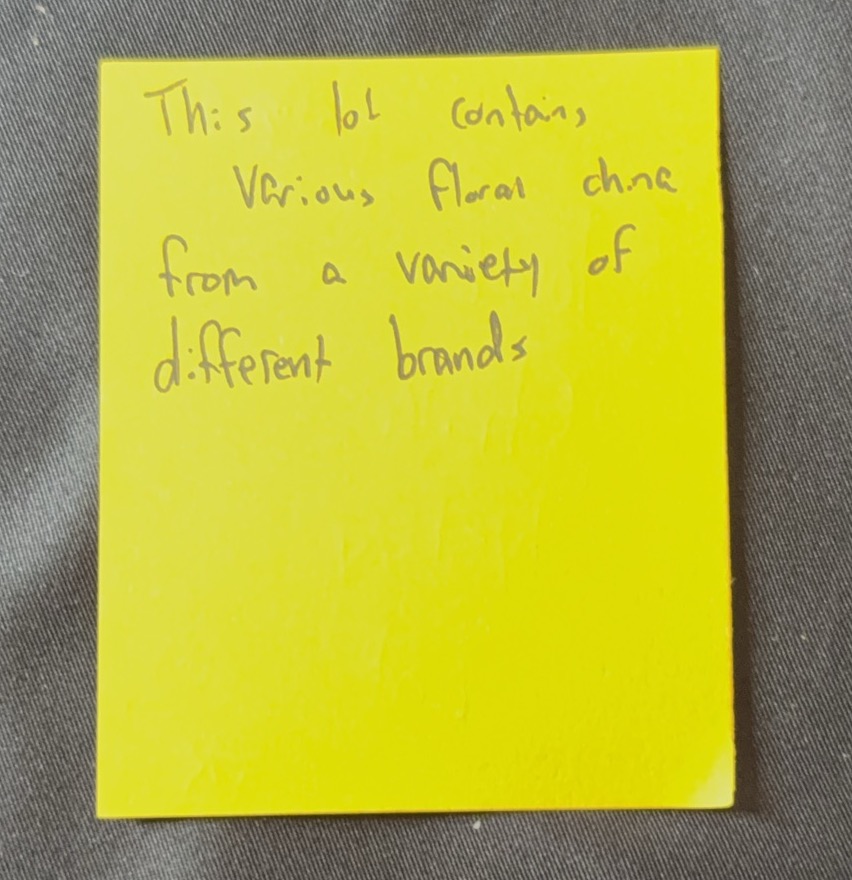 This lot contains
various floral china
from a variety of
different brands